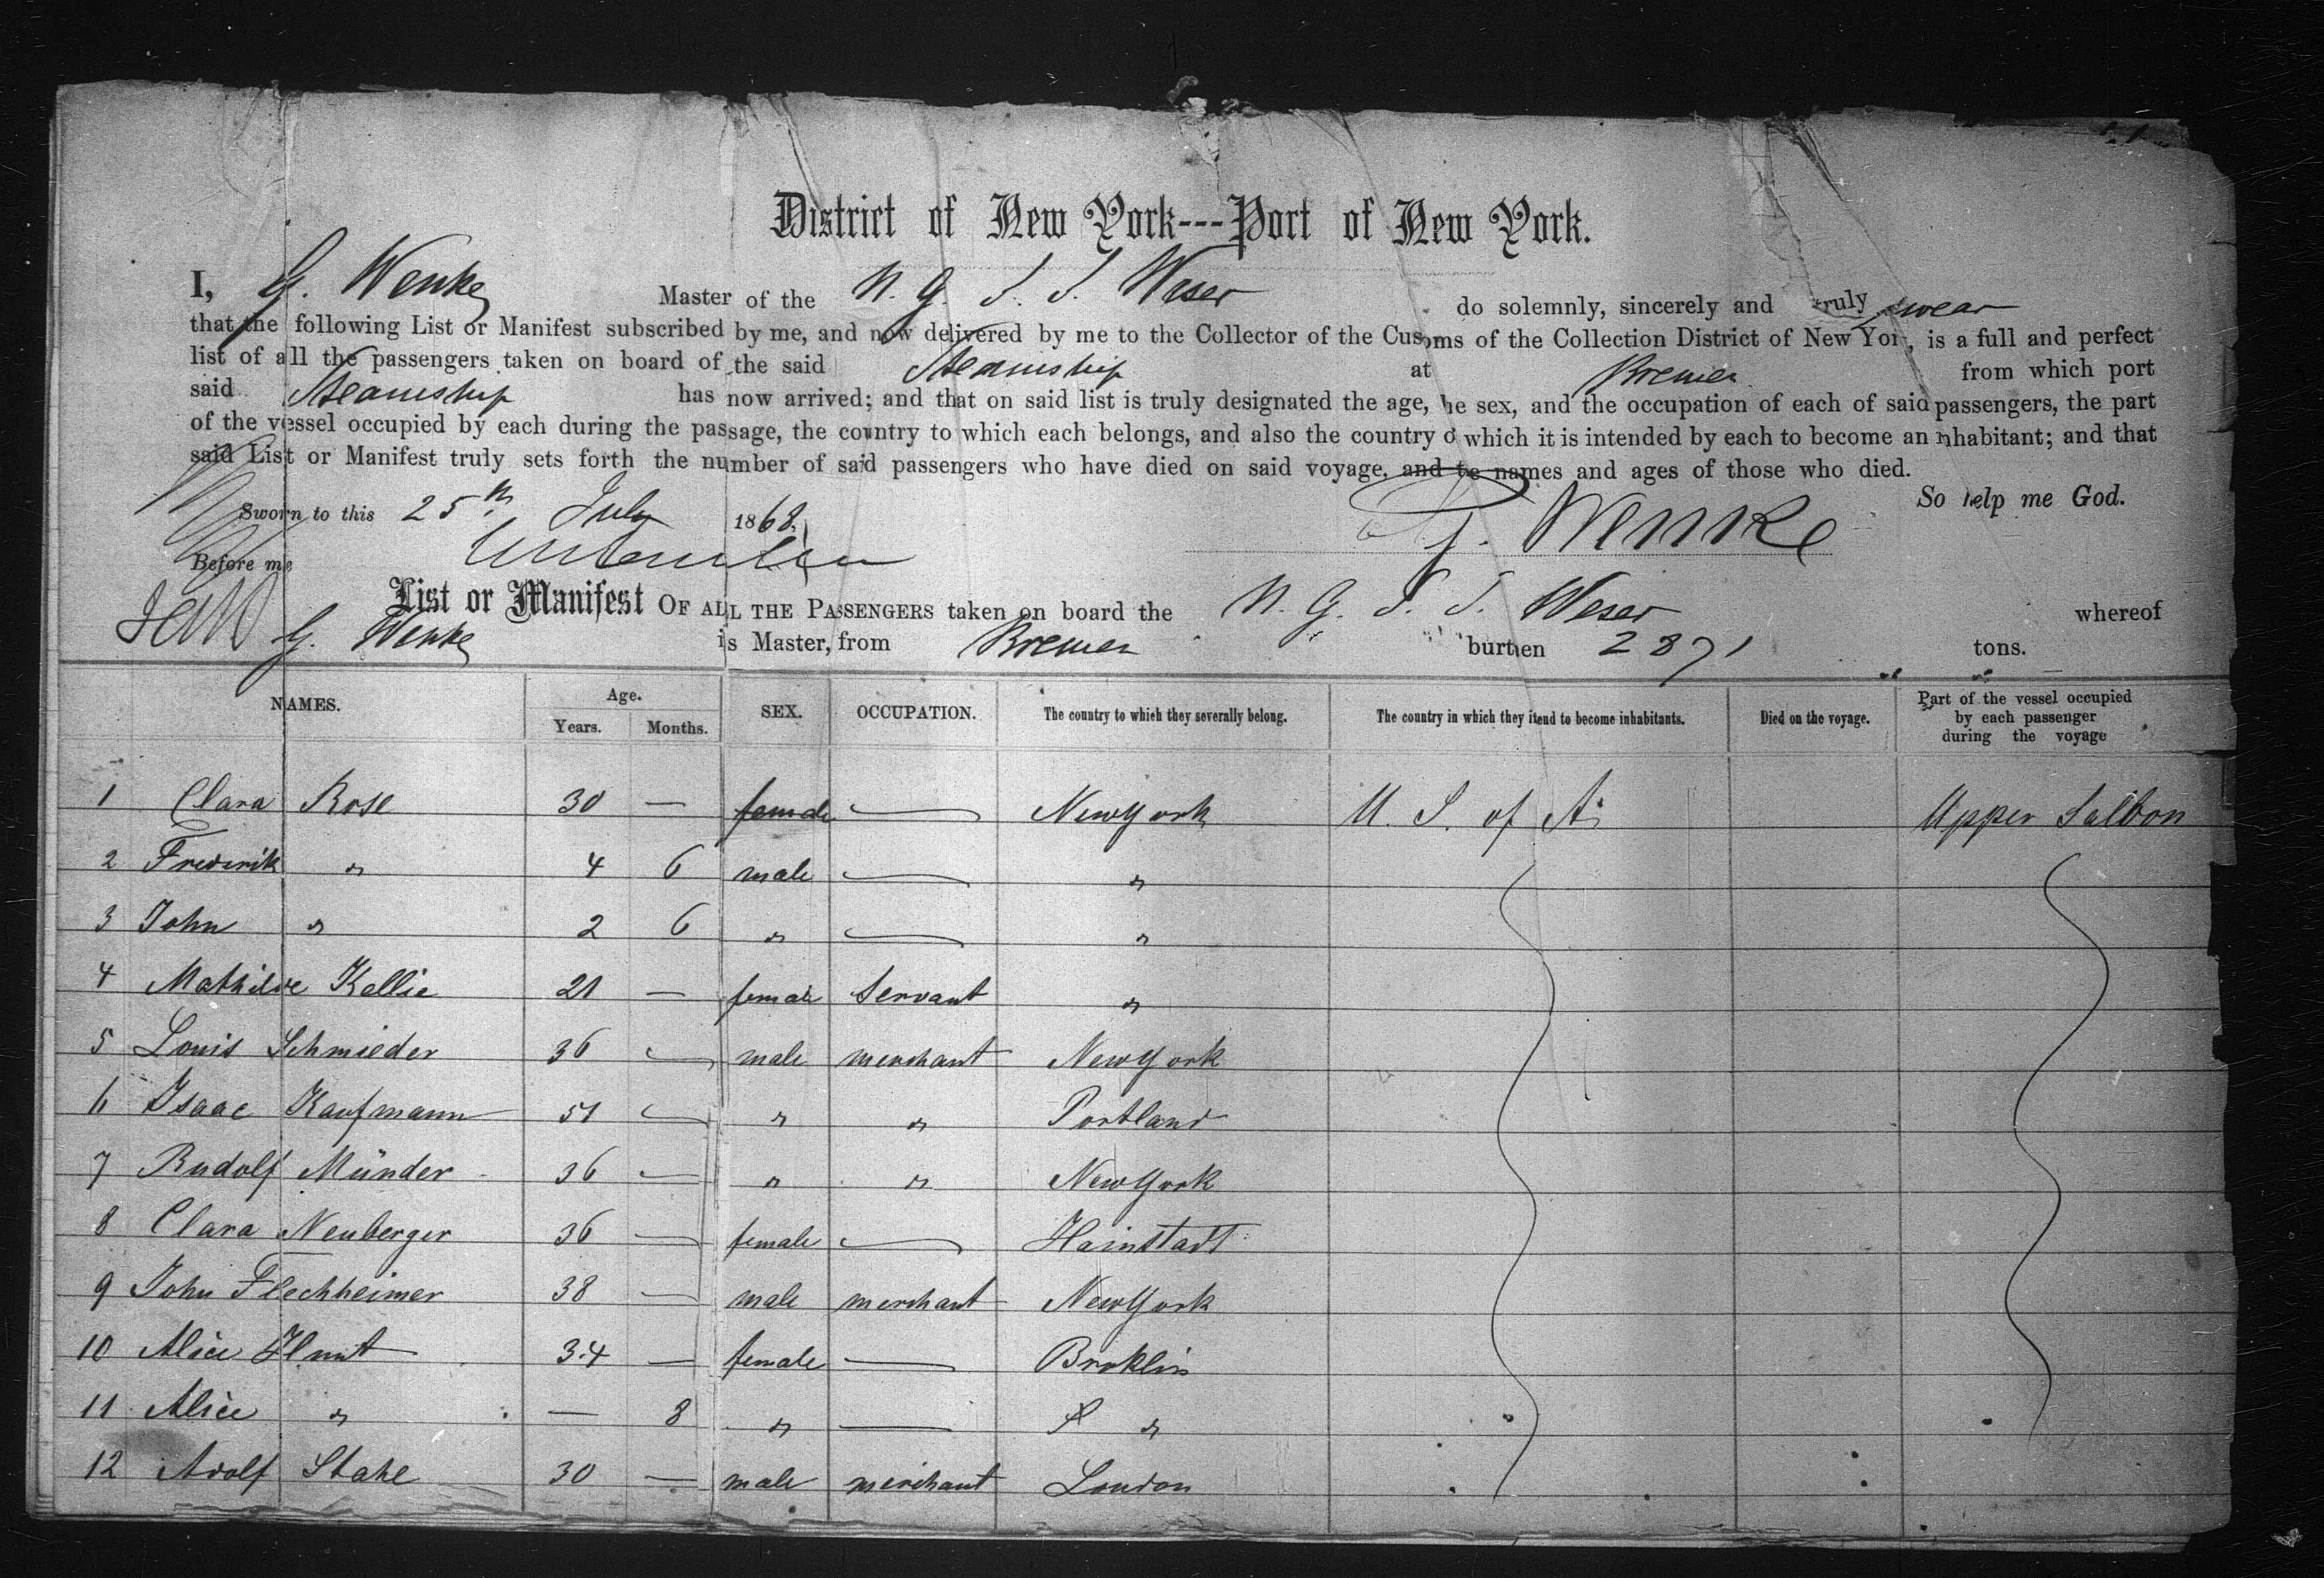 District of New York---Port of New York.
I, G. Wenke Master of the N. G. S. S. Weser do solemnly, sincerely and truly swear
that the following List or Manifest subscribed by me, and now delivered by me to the Collector of the Cusoms of the Collection District of New Yor, is a full and perfect
list of all the passengers taken on board of the said Steamship at Bremen from which port
said Steamship has now arrived; and that on said list is truly designated the age, he sex, and the occupation of each of said passengers, the part
of the vessel occupied by each during the passage, the country to which each belongs, and also the country o which it is intended by each to become an nhabitant; and that
said List or Manifest truly sets forth the number of said passengers who have died on said voyage, and te names and ages of those who died.
So help me God.
Sworn to this 25th July 1868.
G. Wenke
Before me
List or Manifest OF ALL THE PASSENGERS taken on board the N. G. S. S. Weser whereof
G. Wenke is Master, from Bremen burthen 2871 tons.
NAMES. Age. Years. Months. SEX. OCCUPATION. The country to which they severally belong. The country in which they itend to become inhabitants. Died on the voyage. Part of the vessel occupied by each passenger during the voyage
1 Clara Rose 30 — female — New York U. S. of A. Upper Saloon
2 Frederik " 4 6 male — "
3 John " 2 6 " — "
4 Mathilde Kellie 21 — female Servant "
5 Louis Schmieder 36 — male merchant New York
6 Isaac Kaufmann 51 — " " Portland
7 Rudolf Münder 36 — " " New York
8 Clara Neuberger 36 — female — Hainstadt
9 John Flechheimer 38 — male merchant New York
10 Alice Hunt 34 — female — Broklin
11 Alice " — 8 " — "
12 Adolf Stahl 30 — male merchant London